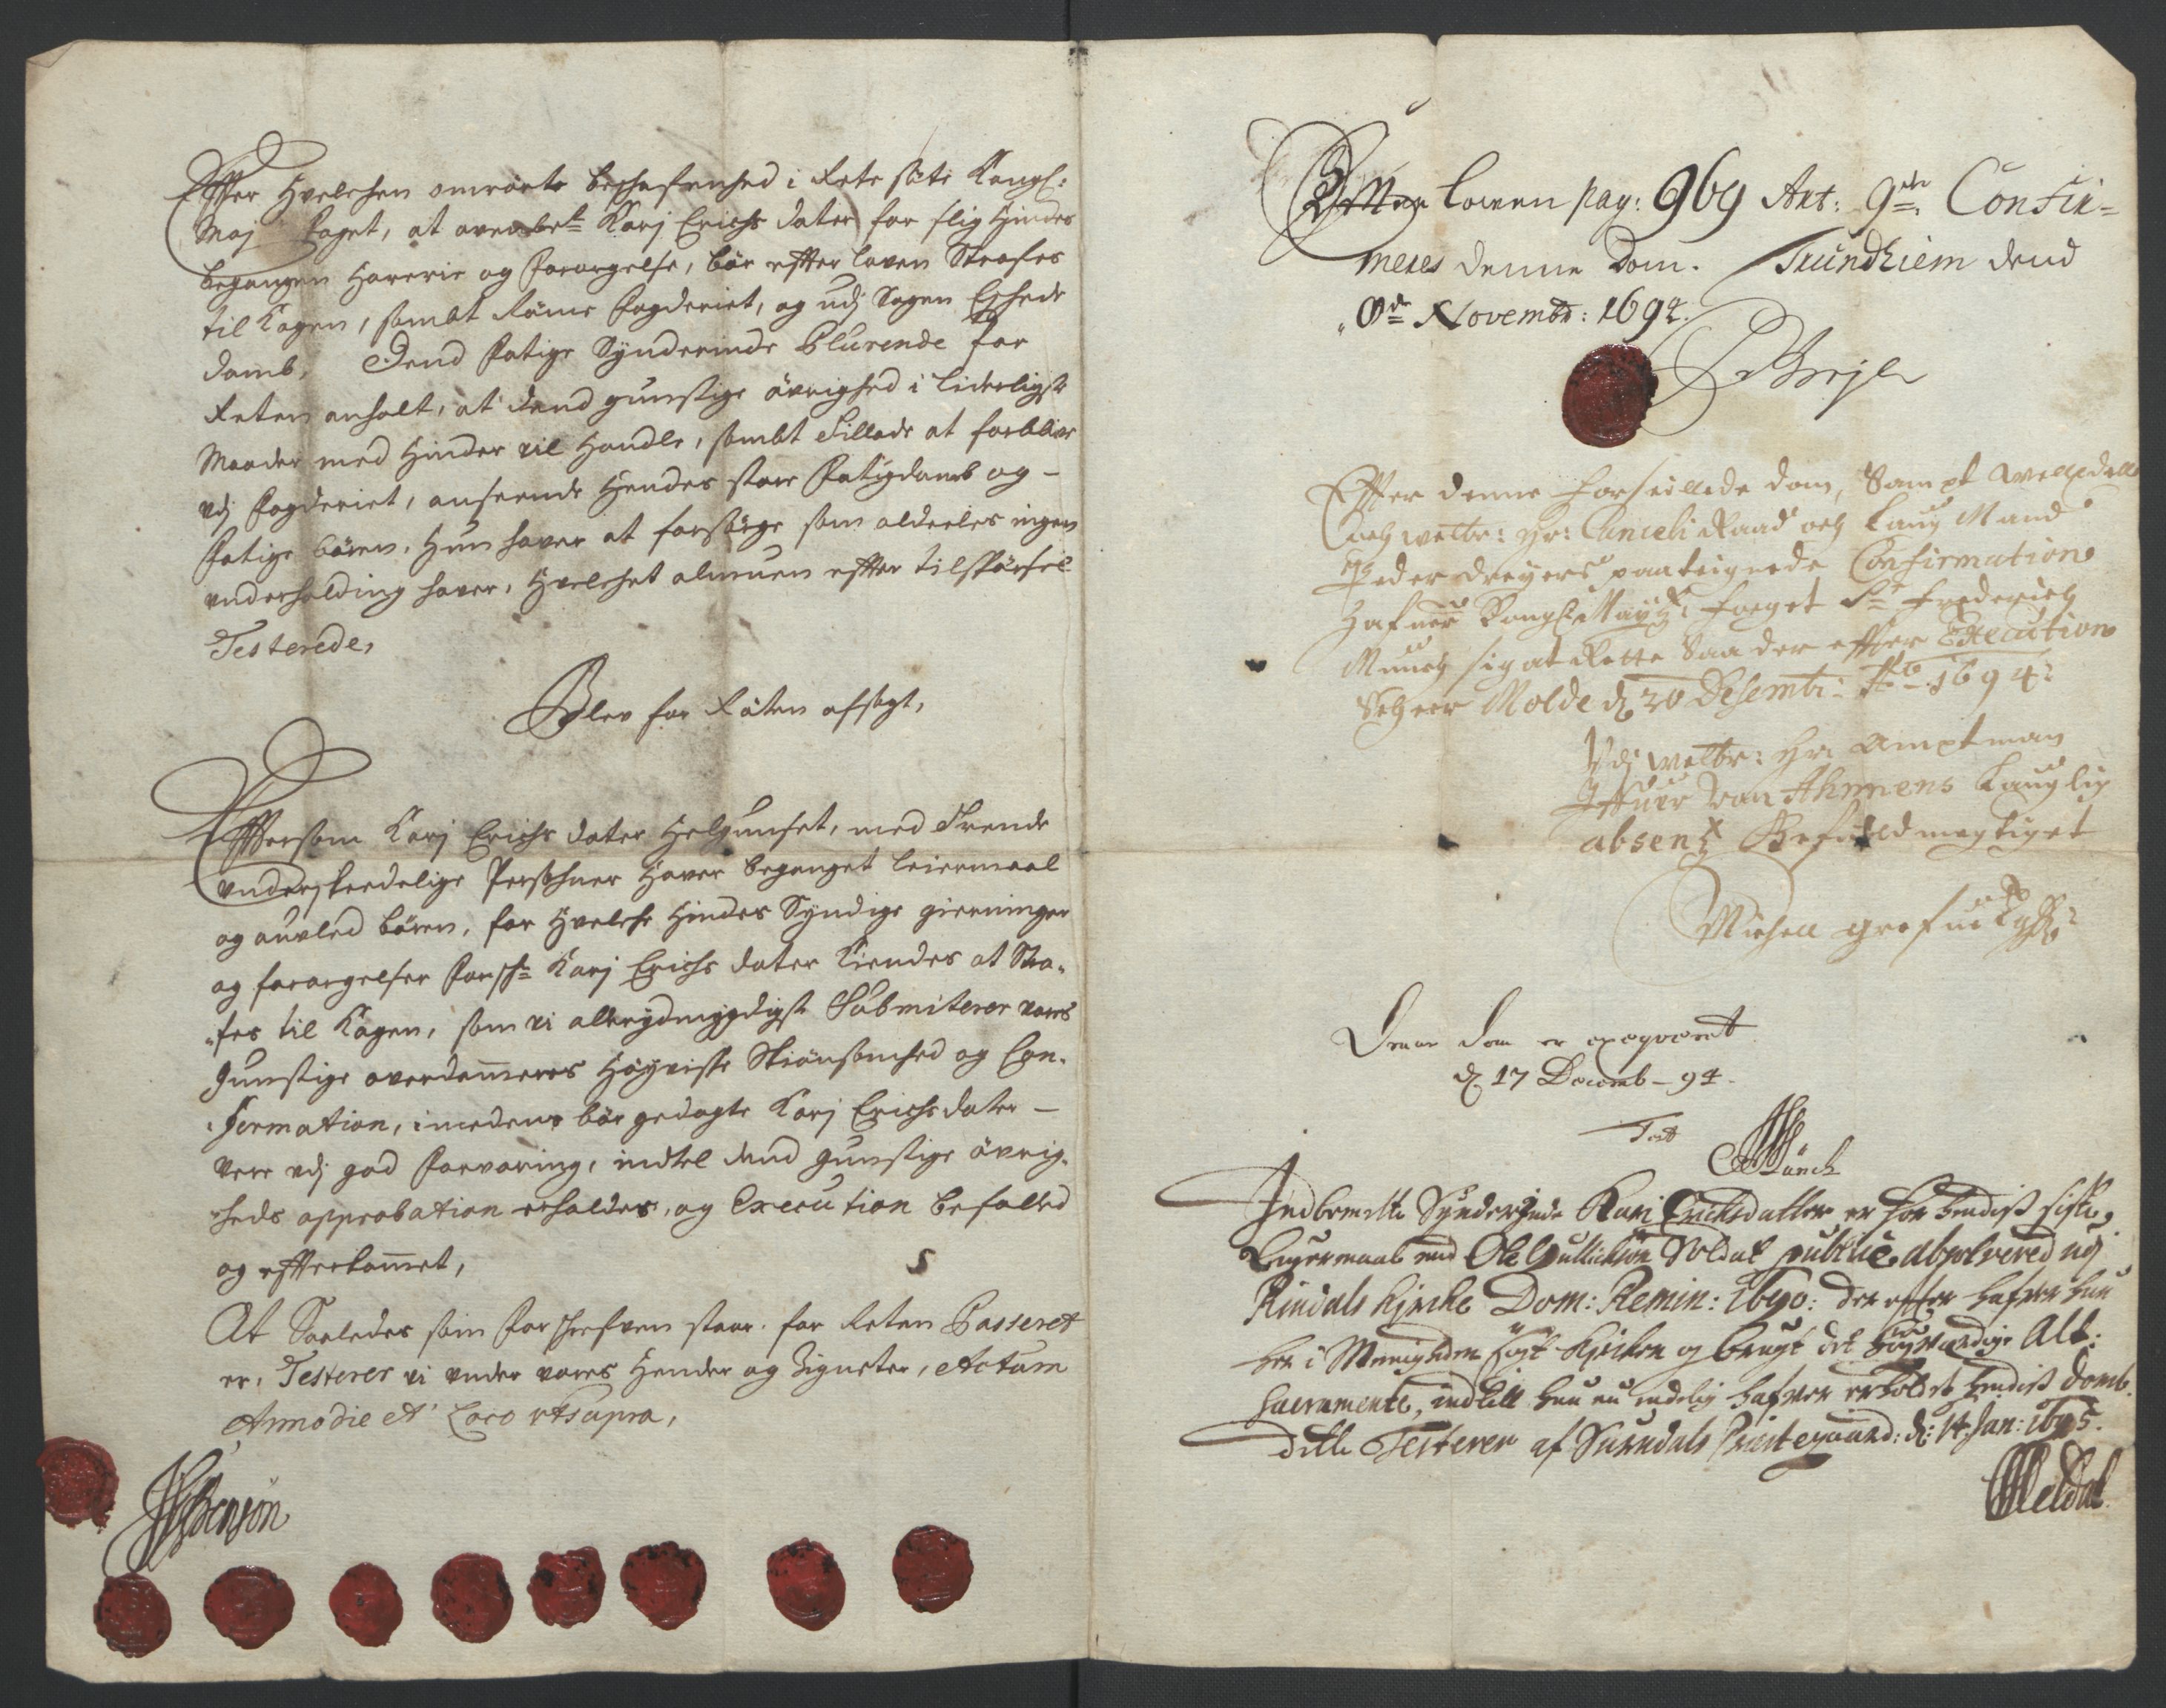 Effter Hvelchen omrørte beschafenhed i Rete satte Kongl:
May Foget, at ovenbete Karj Erichs dater for slig Hindes
begangen Horerie og Forargelse, bør effter loven Strafes
til Kagen, sambt Røme Fogderiet, og udj Sagen Eschede
domb, Dend Fatige Synderinde Blurende for
Reten anholt, at dend gunstige øvrighed i liderligste
Maader med Hinder vil Handle, sambt Tillade at forblive
vdj Fogderiet, anseende Hendes store Fatigdomb og
Fatige børn, Hun haver at forsørge som aldeeles ingen
underholding haver, Hvelchet almuen effter tilspørsel
Testerede,
Blev for Røten afsagt,
Effttersom Karj Erichs dater Helgunset, med Trende
underschedelige Personer Haver beganget leiermaal
og auvled børen, for Hvelche Hindes Syndige gierninger
og forargelser Forsch: Karj Erichs dater Kiendes at Stra-
fes til Kagen, som vi allerydmygdigst Submiterer vores
gunstige overdomeres Høyviisse Skiønsomhed og Con-
Fermation, imedens bør gedagte Karj Erichsdater
være vdj god Forvaring, indtel dend gunstige øvrig-
heds approbation erholdes, og Execution befalled
og effterkomet,
At Saaledes som Forschrefven staar for Reten Passeret
er, Testerer vi under vores Hender og Zigneter, Actum
Anno die et Loco vt supra,
Ibsensøn
Effter loven pag: 969 Art: 9de Confir-
meres denne Dom. Trundhiem dend
8de Novembr: 1694.
PDreyer
Effter denne forseillede dom, Sampt welledelle
och welbr: Hr: Canceli Raad och Laug Mand
Peder Dreyers paateignede Confirmation
hafuer Kongl Mayts: foeget Sr Frederich
Munch sig at Rette Saa der effter Execution
Scheer Molde d 20 Desembr: Ao 1694:
Vdj welbr: Hr: Amptman
von Ahnnens lauglig
absentz Befuldmegtiget
Michell
Denne Dom er exeqveret
d 17 Decemb - 94.
Test
FMünch
Indbemelte Synderinde Kari Erichsdatter er for hendis siste
Leyermaal med Ole Gullichsøn Soldat publicè absolvered udj
Rindals Kircke Dom: Remin: 1690: der effter hafver hun
her i Menigheden søgt Kircken og brugt det høyverdige Alt:
Sacramente, indtill hun nu endelig hafver erholdet hendis domb.
dette Testerer af Surendals Prestegaard: d: 14 Jan: 1695.
Meldal